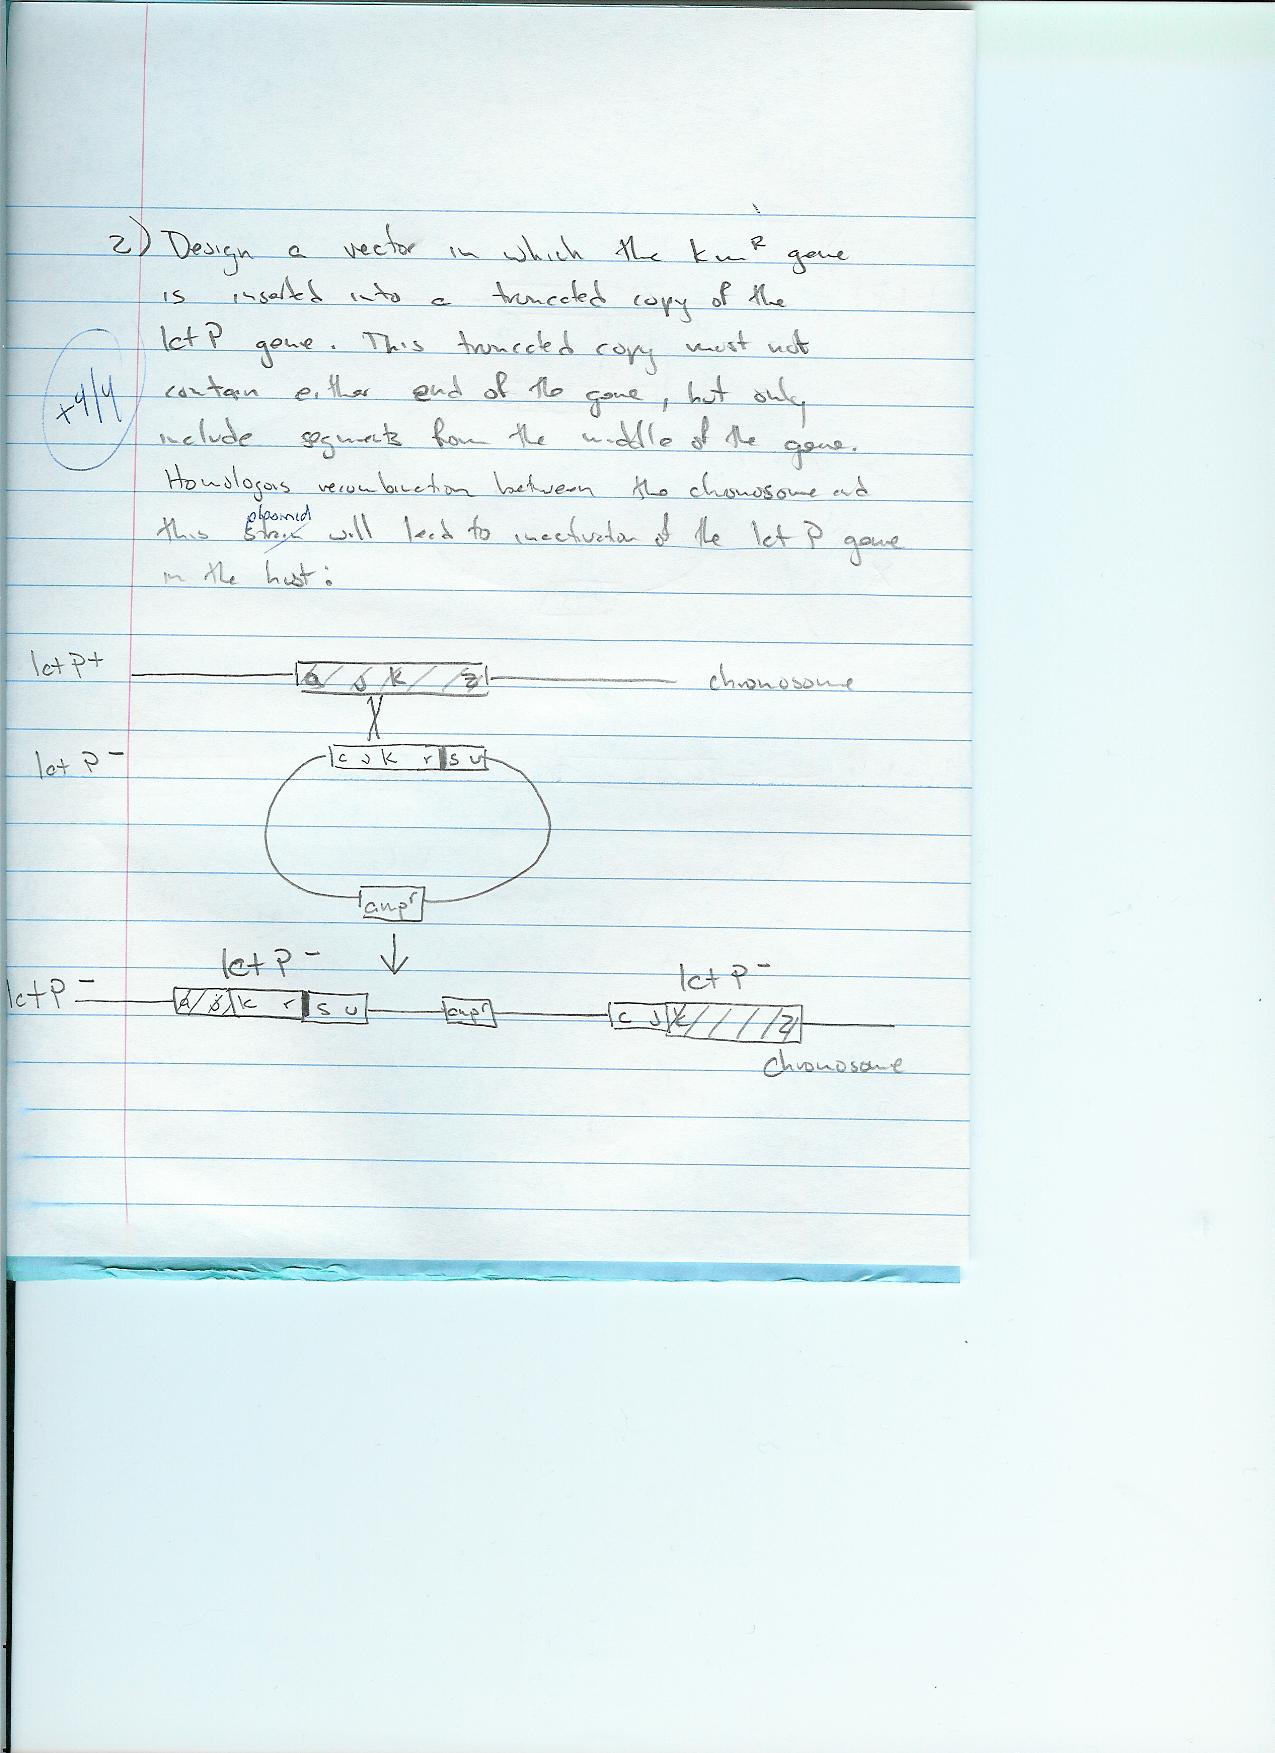 2) Design a vector in which the kmR gene
is inserted into a truncated copy of the
lctP gene. This truncated copy must not
contain either end of the gene, but only
include segments from the middle of the gene.
+4/4
Homologous recombination between the chromosome and
this strain plasmid will lead to inactivation of the lctP gene
in the host:
lctP+ a j k z chromosome
lctP- c j k r s u
ampr
lctP- lctP-
lctP- a j k r s u ampr c j k z
chromosome